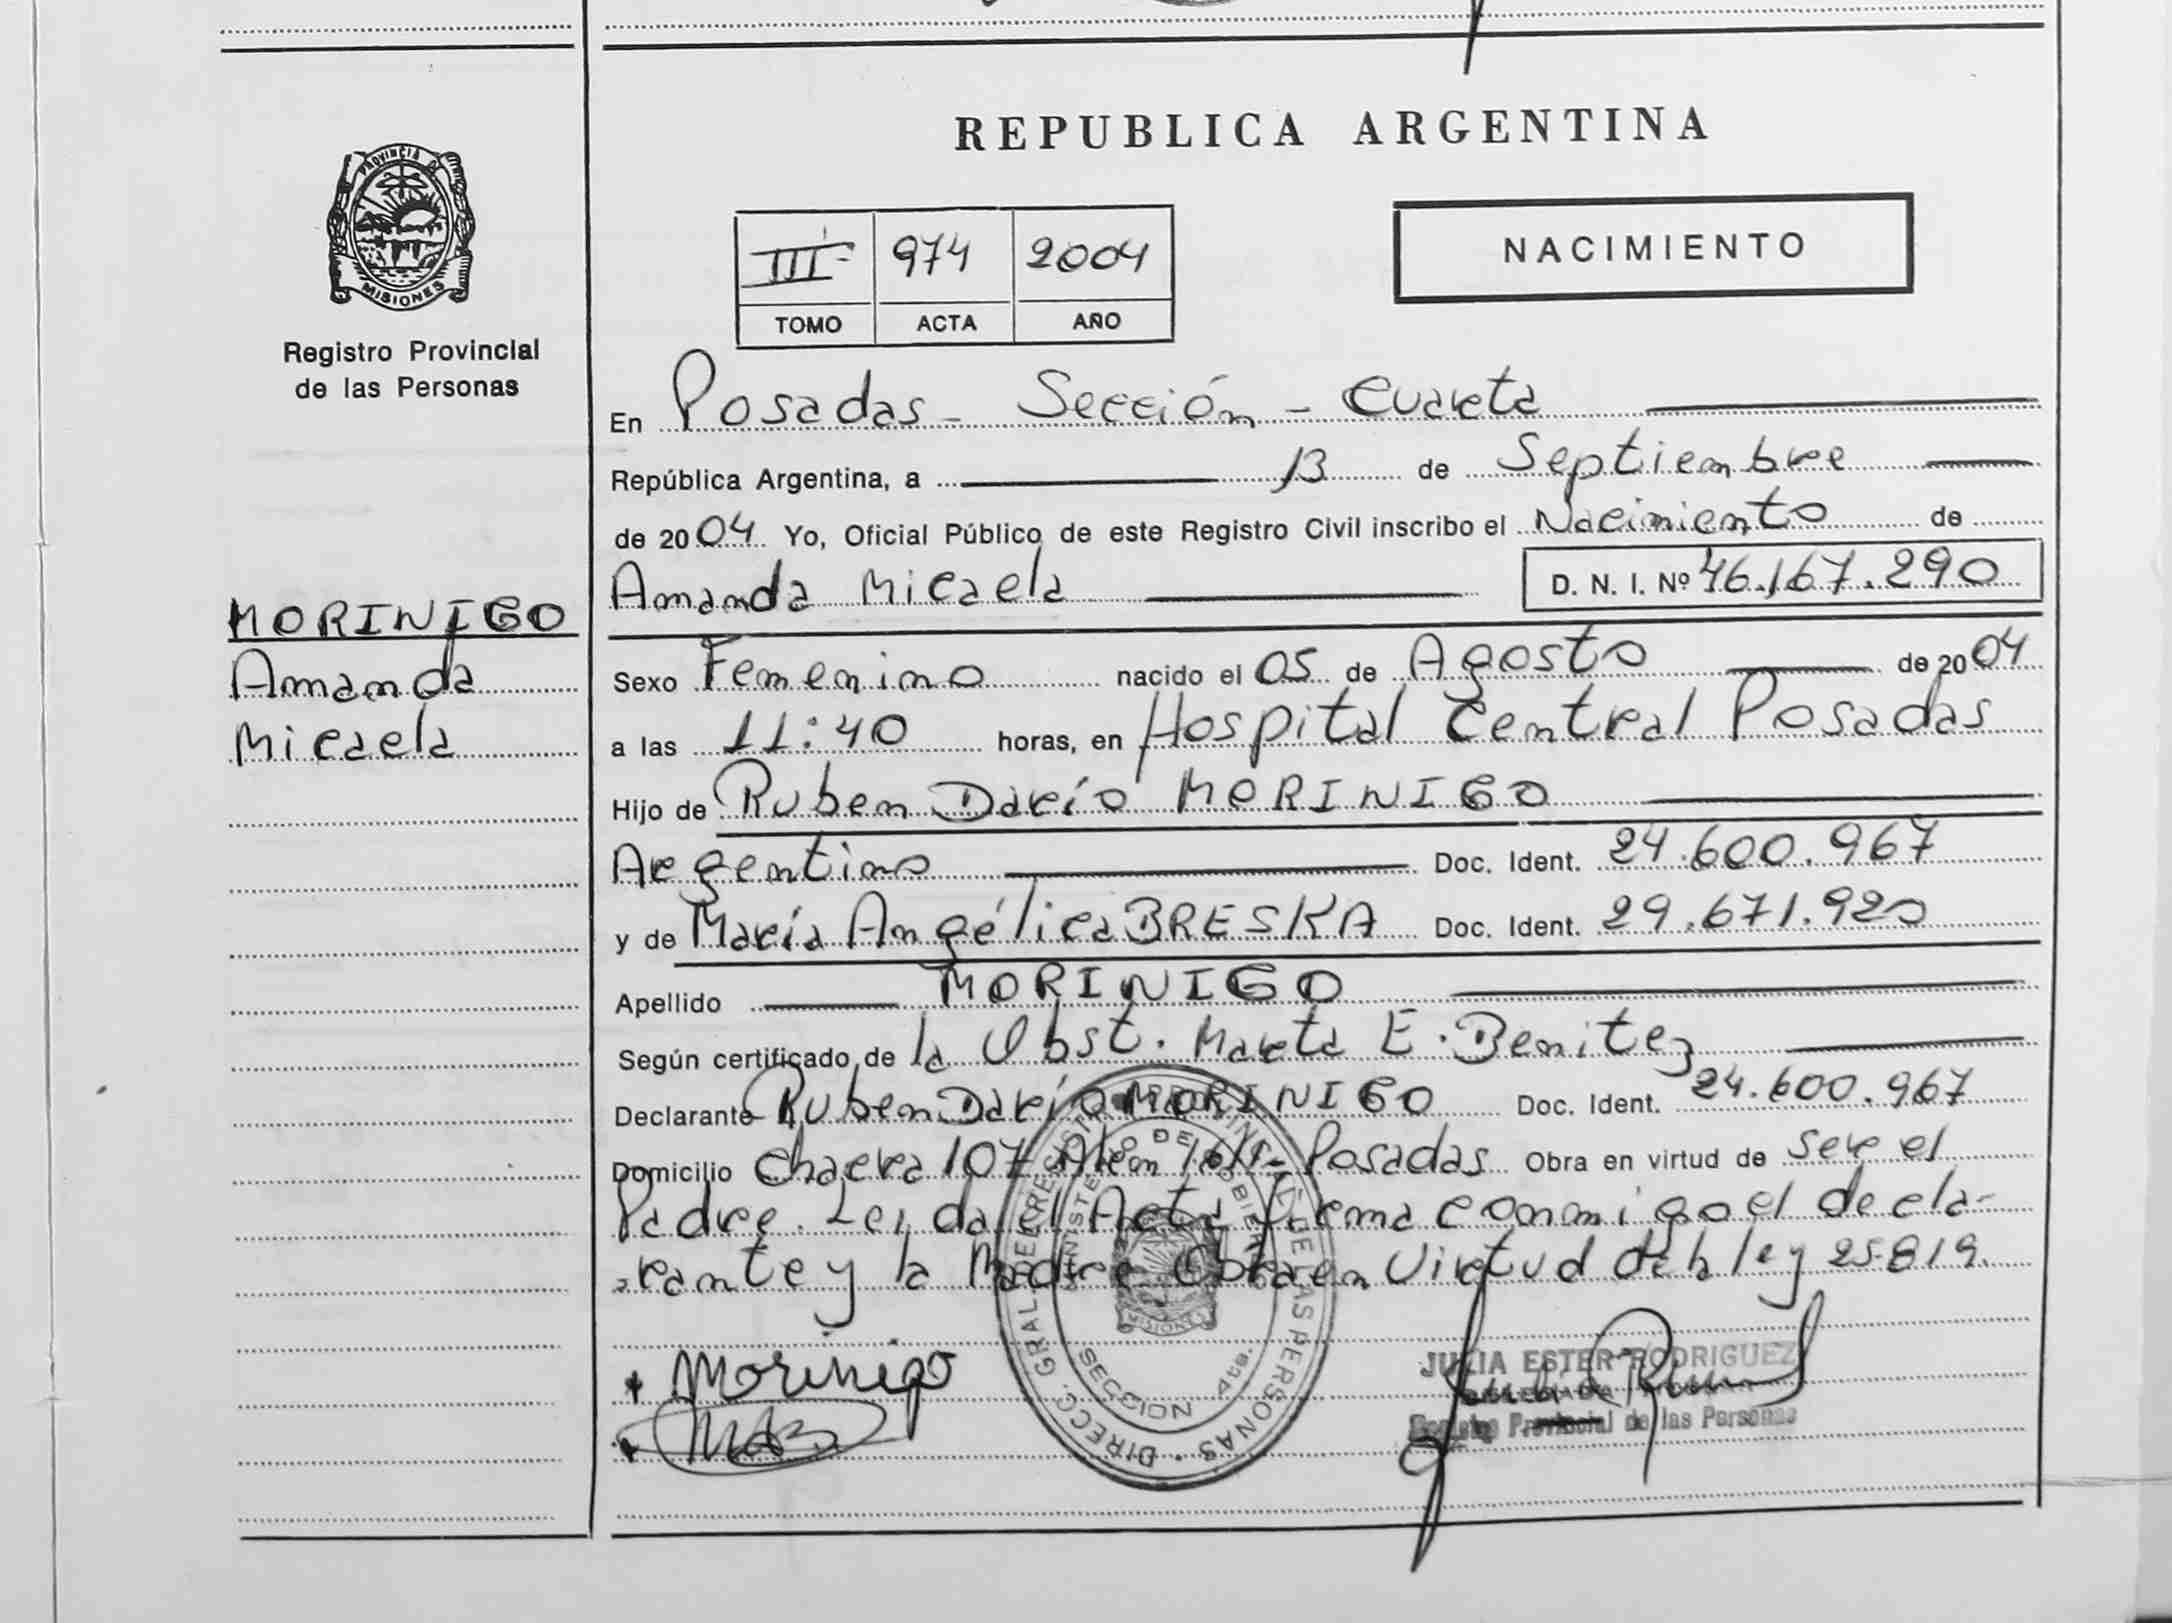 REPUBLICA ARGENTINA
PROVINCIA DE
MISIONES
Registro Provincial
de las Personas
III 974 2004
TOMO ACTA AÑO
NACIMIENTO
En Posadas - Sección - Cuarta
República Argentina, a 13 de Septiembre
de 2004 Yo, Oficial Público de este Registro Civil inscribo el Nacimiento de
Amanda Micaela D. N. I. Nº 46.167.290
MORINIGO
Amanda
Micaela
Sexo Femenino nacido el 05 de Agosto de 2004
a las 11:40 horas, en Hospital Central Posadas
Hijo de Ruben Darío MORINIGO
Argentino Doc. Ident. 24.600.967
y de María Angélica BRESKA Doc. Ident. 29.671.920
Apellido MORINIGO
Según certificado de la Obst. Marta E. Benitez
Declarante Ruben Darío MORINIGO Doc. Ident. 24.600.967
Domicilio Chacra 107 Posadas Obra en virtud de ser el
Padre. Leida el Acta firma conmigo el decla-
rante y la Madre Obra en Virtud de la ley 25.819.
Morinigo
MAB
DIRECC. GRAL. DEL REGISTRO PROVINCIAL DE LAS PERSONAS
MINISTERIO DE GOBIERNO
MISIONES
SECCION 4ta.
JULIA ESTER RODRIGUEZ
Registro Provincial de las Personas